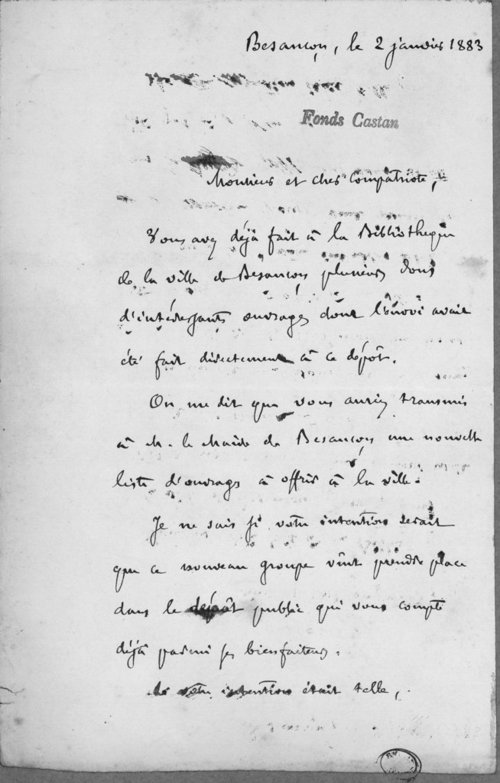 Besançon, le 2 janvier 1883
Fonds Castan
Monsieur et cher Compatriote,
Vous avez déjà fait à la Bibliothèque
de la ville de Besançon plusieurs dons
d'intéressants ouvrages dont l'envoi avait
été fait directement à ce dépôt.
On me dit que vous auriez transmis
à M. le Maire de Besançon une nouvelle
liste d'ouvrages à offrir à la ville.
Je ne sais si votre intention serait
que ce nouveau groupe vînt prendre place
dans le dépôt public qui vous compte
déjà parmi ses bienfaiteurs.
Si votre intention était telle,